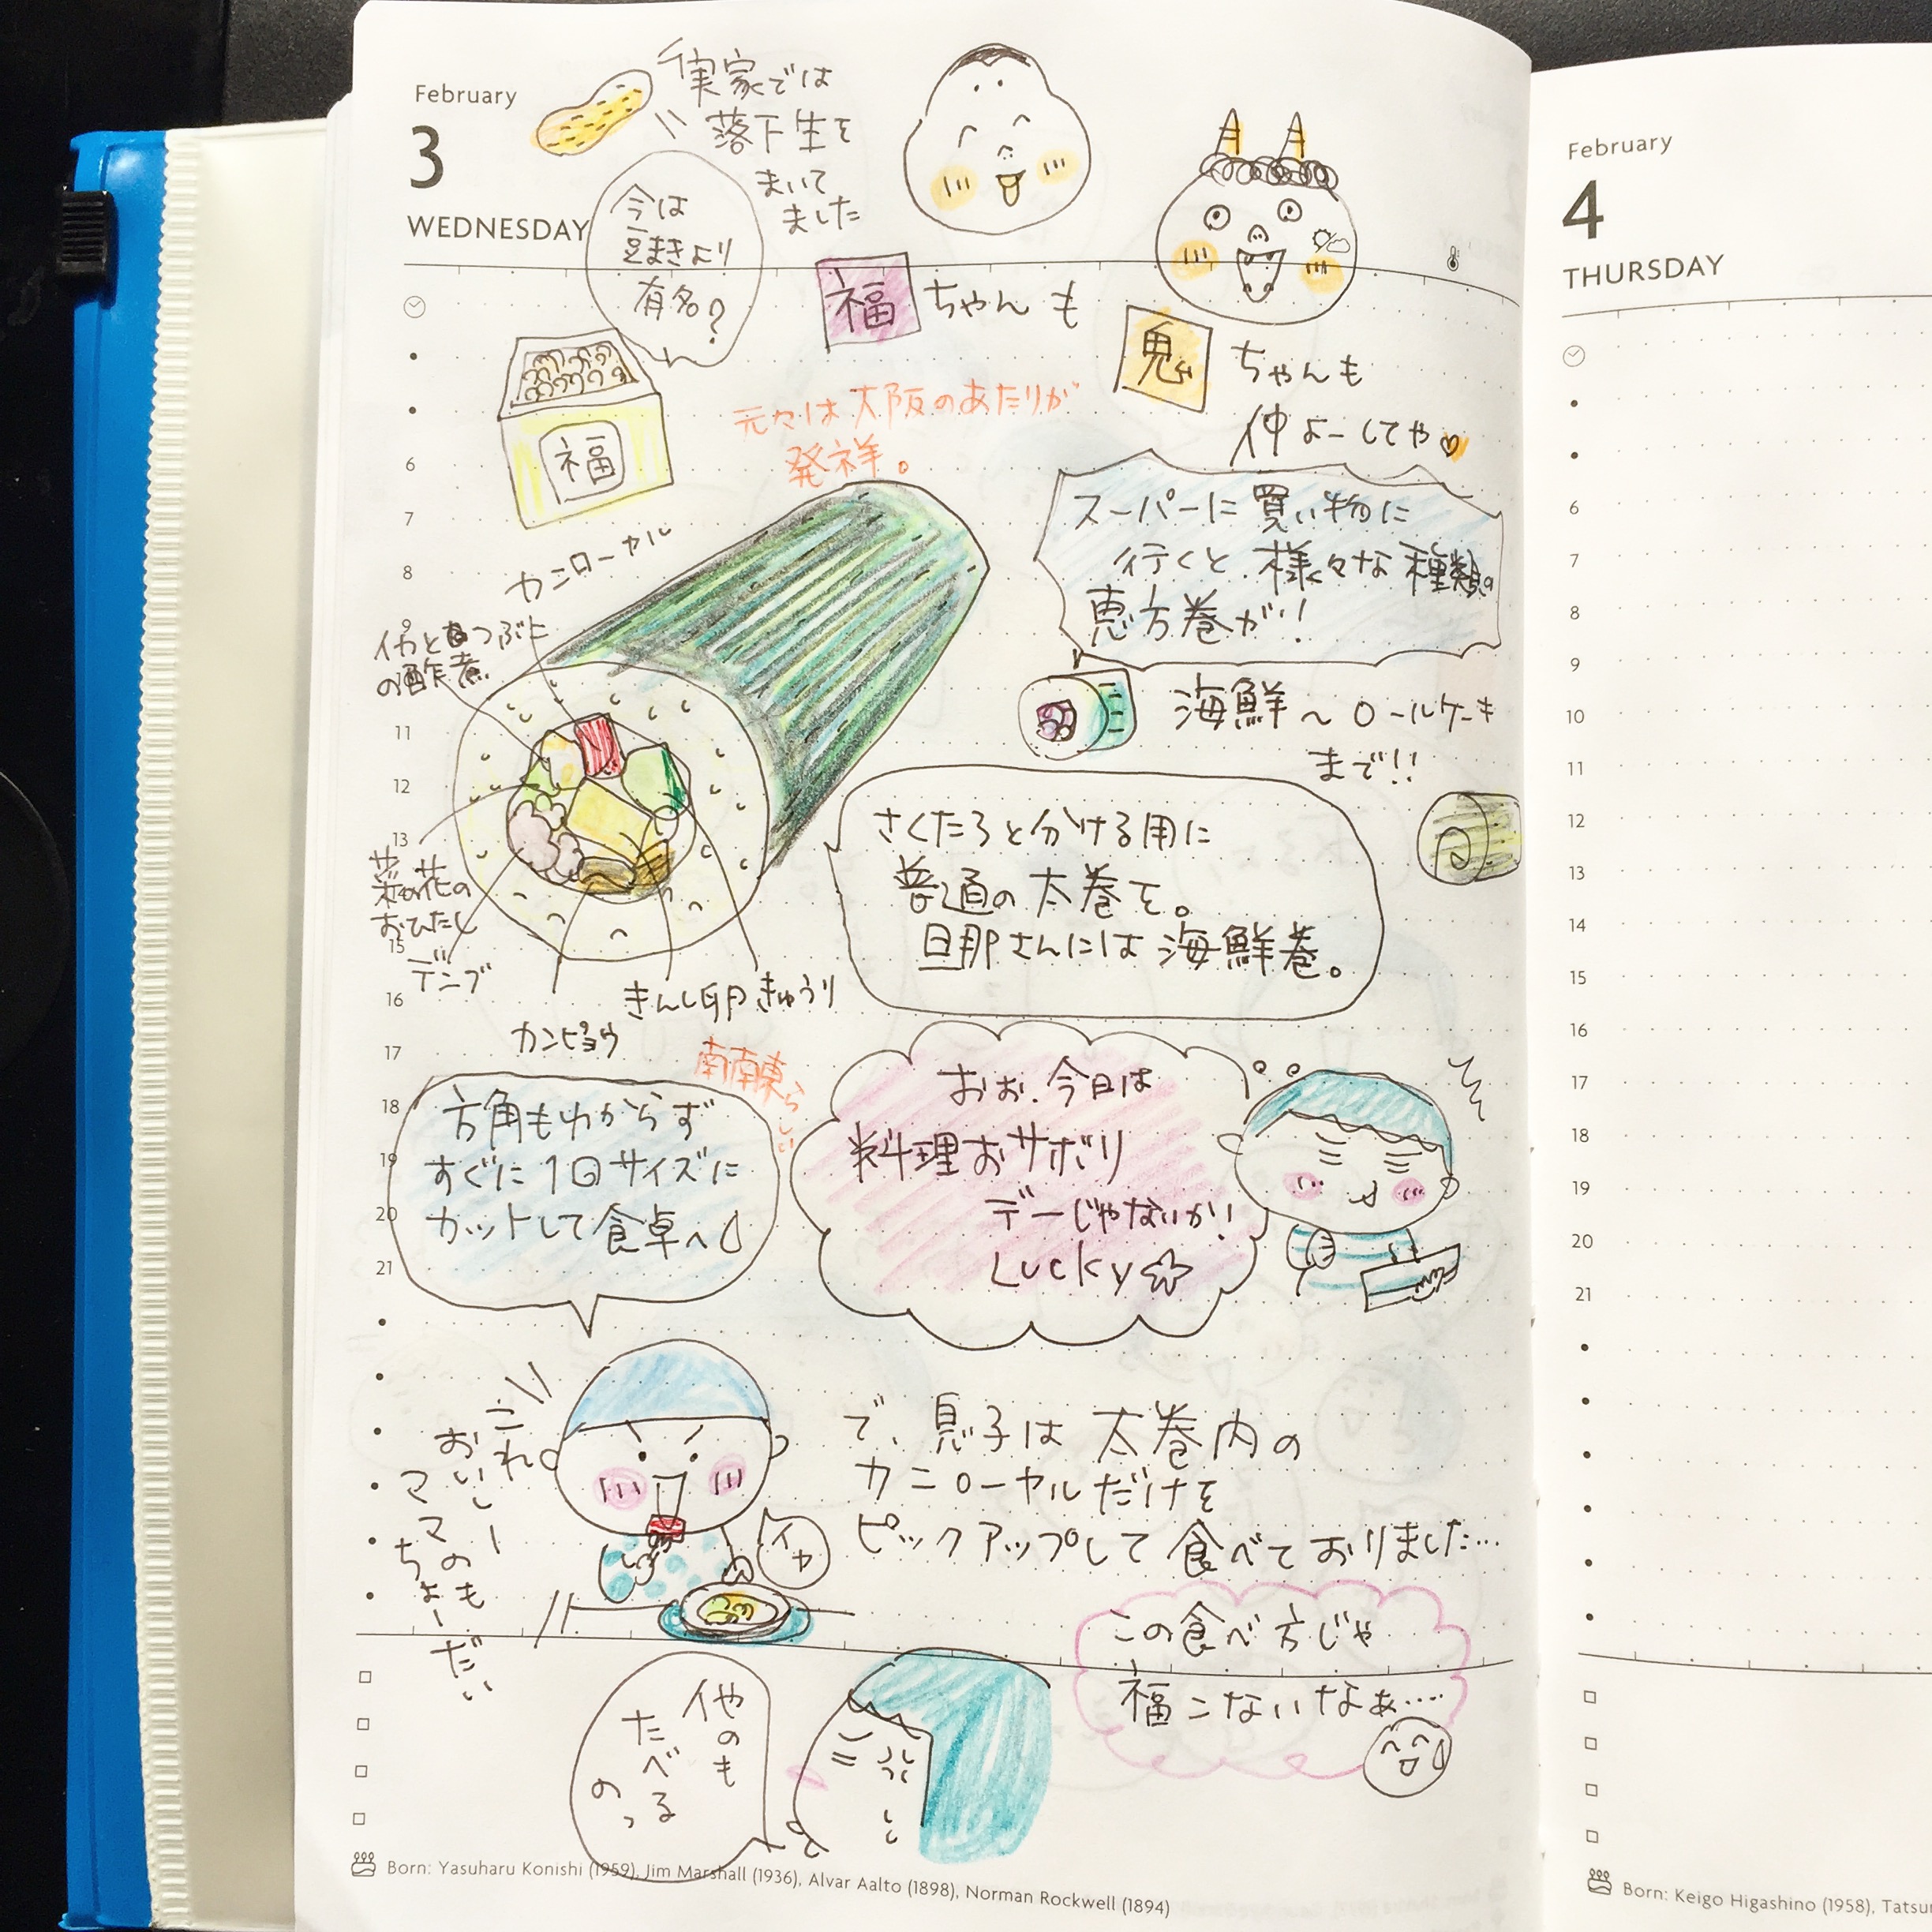 February
3
WEDNESDAY
実家では
落下生を
まいて
ました
今は
豆まきより
有名?
福
福ちゃんも
鬼ちゃんも
仲よーしてや
元々は大阪のあたりが
発祥。
スーパーに買い物に
行くと様々な種類の
恵方巻が!
海鮮〜ロールケーキ
まで!!
カニローヤル
の酢煮
菜の花の
おひたし
デンブ
カンピョウ
きんし卵
きゅうり
さくたろと分ける用に
普通の太巻を。
旦那さんには海鮮巻。
南南東らしい
方角もわからず
すぐに1回サイズに
カットして食卓へ
おお、今日は
料理おサボり
デーじゃないか!
Lucky☆
これ
おいしー
ママのも
ちょーだい
イヤ
で、息子は太巻内の
カニローヤルだけを
ピックアップして食べておりました…
この食べ方じゃ
福こないなぁ….
他のも
たべる
のっ
6
7
8
11
12
13
15
16
17
18
19
20
21
Born: Yasuharu Konishi (1959), Jim Marshall (1936), Alvar Aalto (1898), Norman Rockwell (1894)
February
4
THURSDAY
6
7
8
9
10
11
12
13
14
15
16
17
18
19
20
21
Born: Keigo Higashino (1958), Tatsu